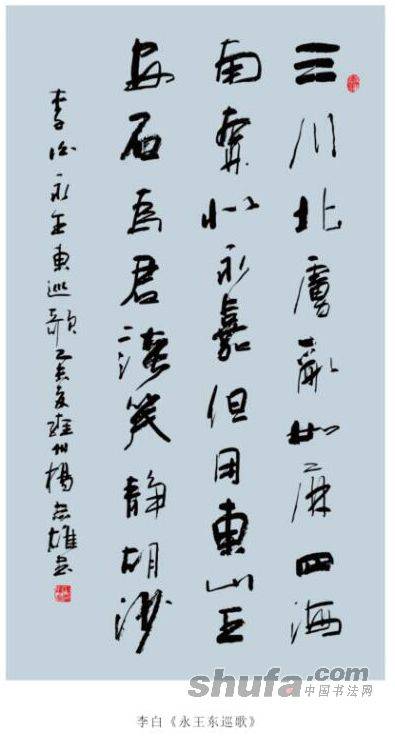 三川北虜亂如麻四海
南奔似永嘉但用東山王
安石為君談笑靜胡沙
李白永王東巡歌乙未夏州楊志雄書
shufa.com
中国书法网
李白《永王东巡歌》